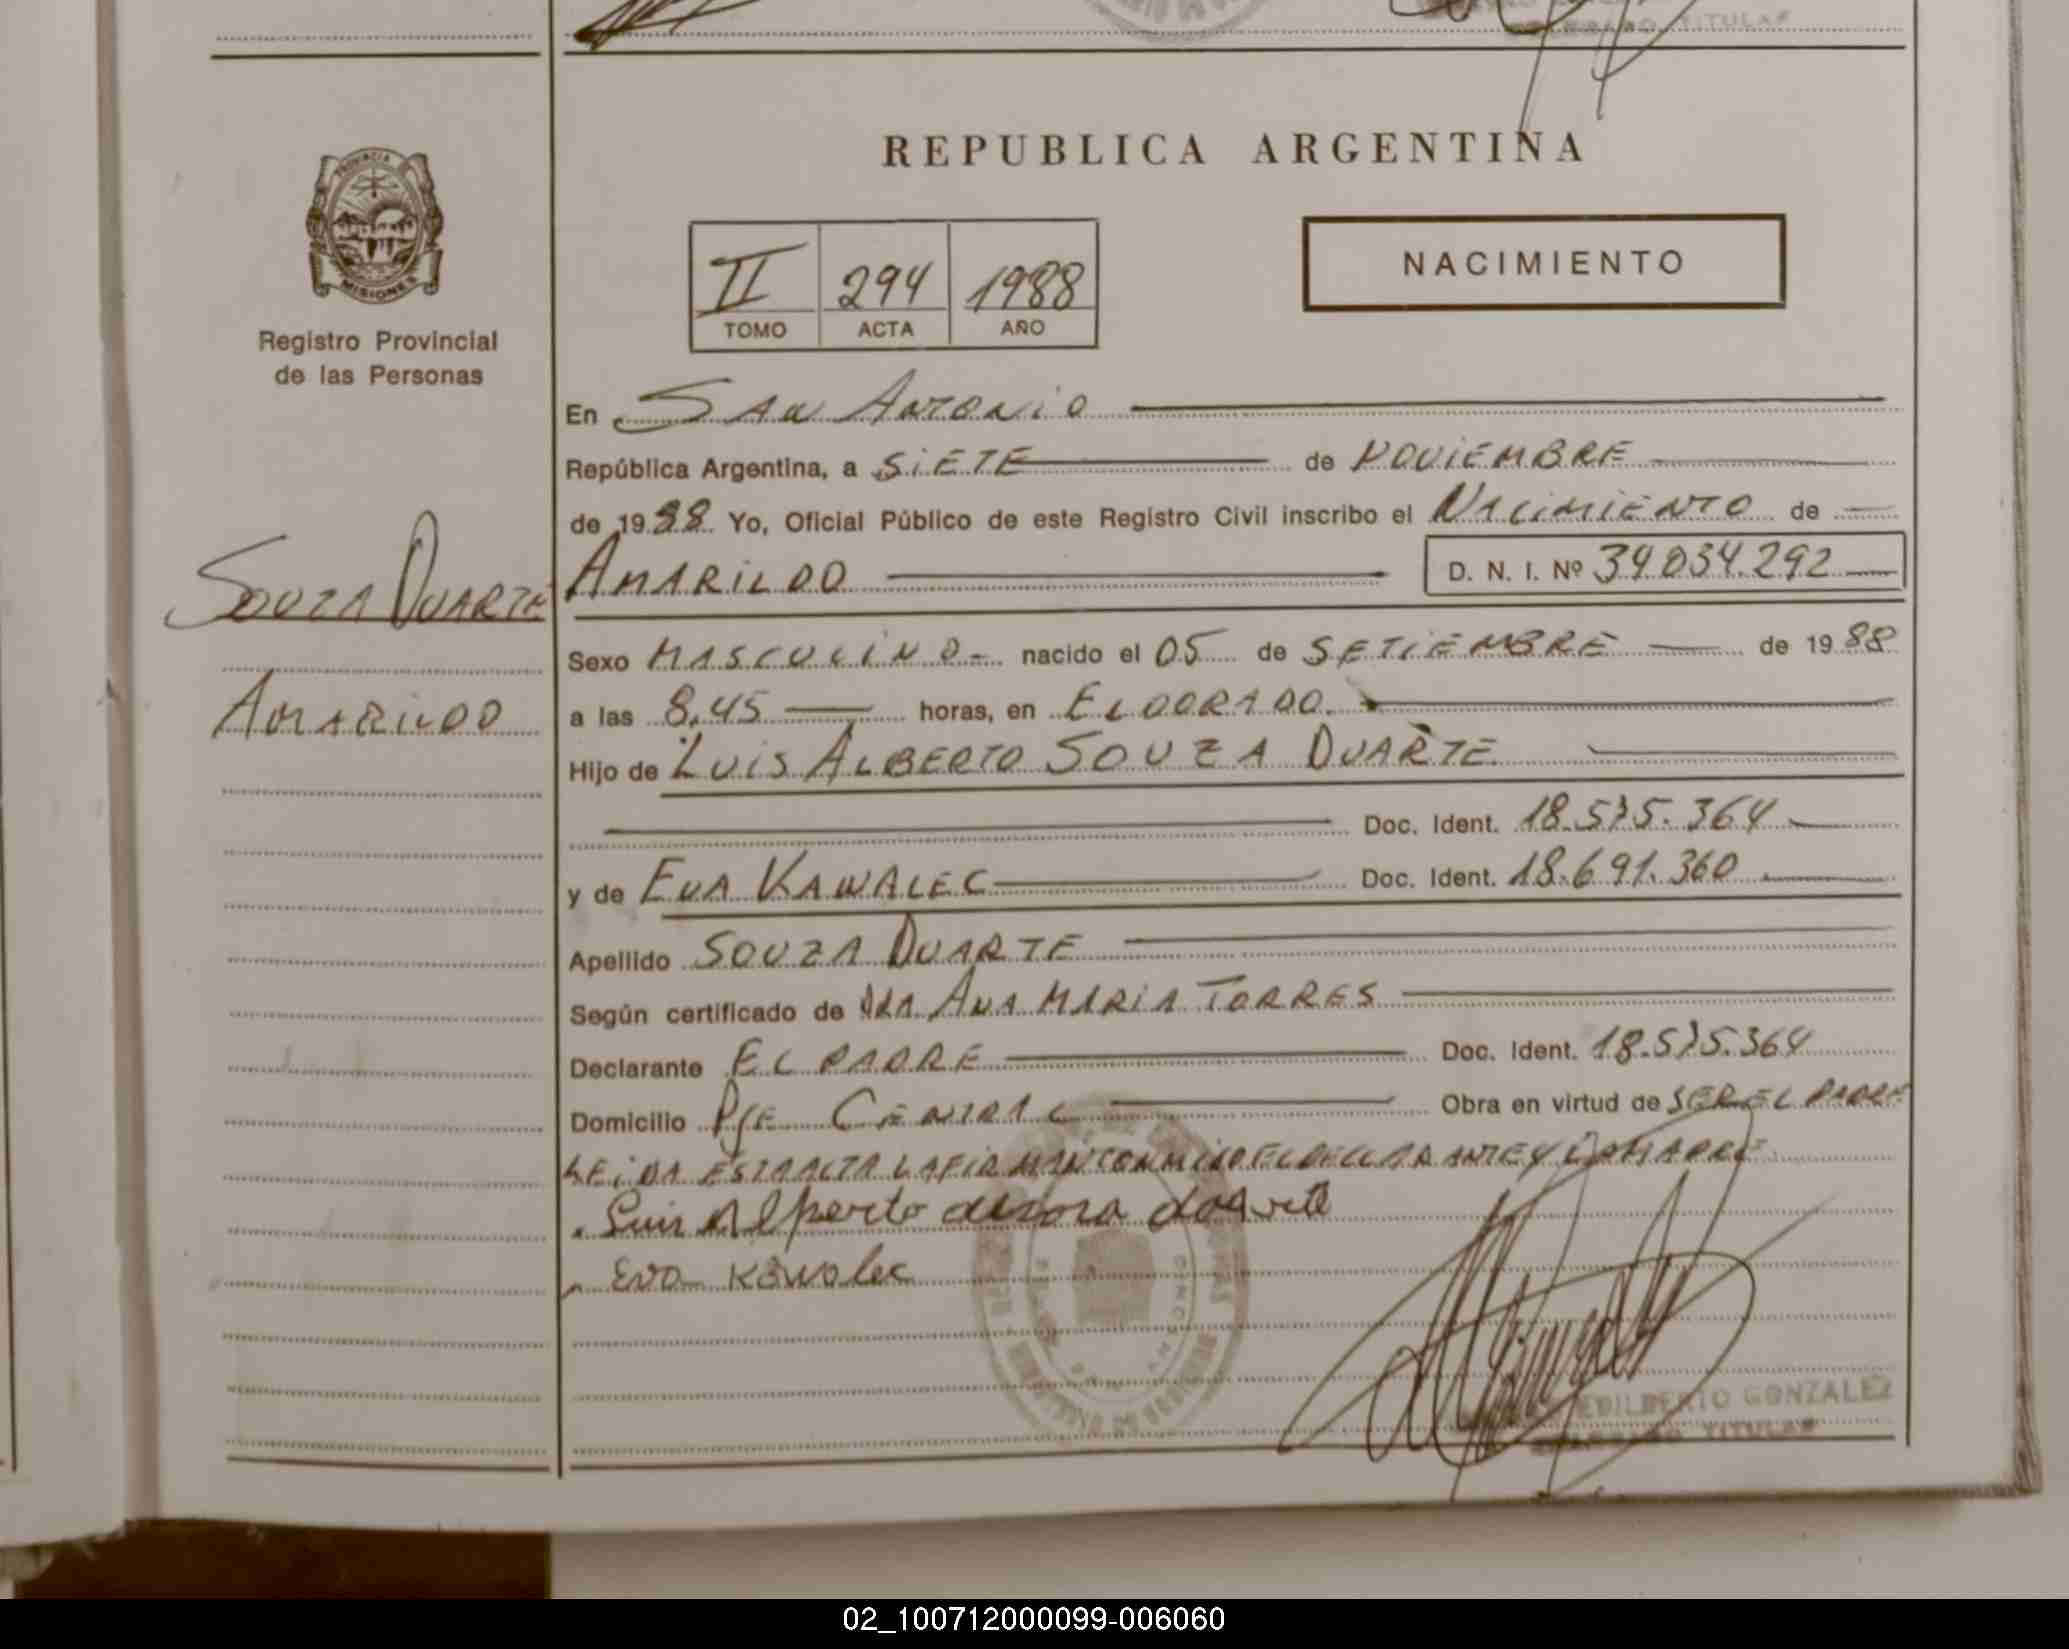 TITULAR
PROVINCIA
MISIONES
Registro Provincial
de las Personas
REPUBLICA ARGENTINA
II 294 1988
TOMO ACTA AÑO
NACIMIENTO
En SAN ANTONIO
República Argentina, a SIETE de NOVIEMBRE
de 1988 Yo, Oficial Público de este Registro Civil inscribo el NACIMIENTO de
SOUZA DUARTE
AMARILDO
AMARILDO D. N. I. Nº 34.034.292
Sexo MASCULINO nacido el 05 de SETIEMBRE de 1988
a las 8,45 horas, en ELDORADO.
Hijo de LUIS ALBERTO SOUZA DUARTE
Doc. Ident. 18.575.364
y de EVA KAWALEC Doc. Ident. 18.691.360
Apellido SOUZA DUARTE
Según certificado de DRA ANA MARIA TORRES
Declarante EL PADRE Doc. Ident. 18.575.364
Domicilio PJE CENTRAL Obra en virtud de SER EL PADRE
LEIDA ESTA ACTA LA FIRMAN CONMIGO EL DECLARANTE Y LA MADRE
Luis Alperto
Eva Kawalec
EDILBERTO GONZALEZ
TITULAR
02_100712000099-006060